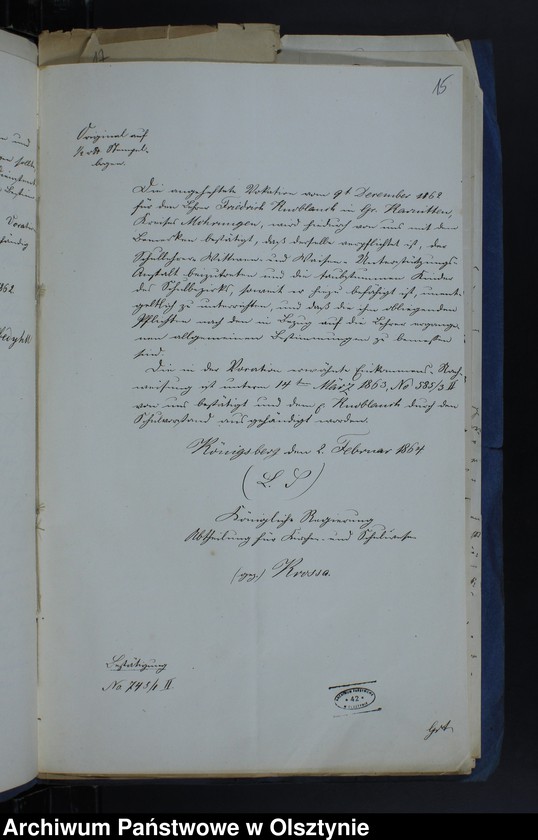 15
Original auf
Stempel-
bogen.
Die angeheftete Vokation vom 9t December 1862
für den Lehrer Friedrich Knoblauch in Gr. Karnitten,
Kreises Mohrungen, wird hiedurch von uns mit dem
Bemerken bestätigt, daß derselbe verpflichtet ist, der
Schullehrer-Wittwen- und Waisen-Unterstützungs-
Anstalt beizutreten und die taubstummen Kinder
des Schulbezirks, soweit er hiezu befähigt ist, unent-
geltlich zu unterrichten, und daß die ihm obliegenden
Pflichten nach den in Bezug auf die Lehrer ergange-
nen allgemeinen Bestimmungen zu bemessen
sind.
Die in der Vocation erwähnte Einkommens-Nach-
weisung ist unterm 14ten März 1863, No 585/3 II
von uns bestätigt und dem p Knoblauch durch den
Schulvorstand ausgehändigt worden.
Königsberg den 2. Februar 1864
(L. S)
Königliche Regierung
Abtheilung für Kirchen- und Schulwesen
(gez) Krossa.
Bestätigung
No 743/1 II.
42
Archiwum Państwowe w Olsztynie